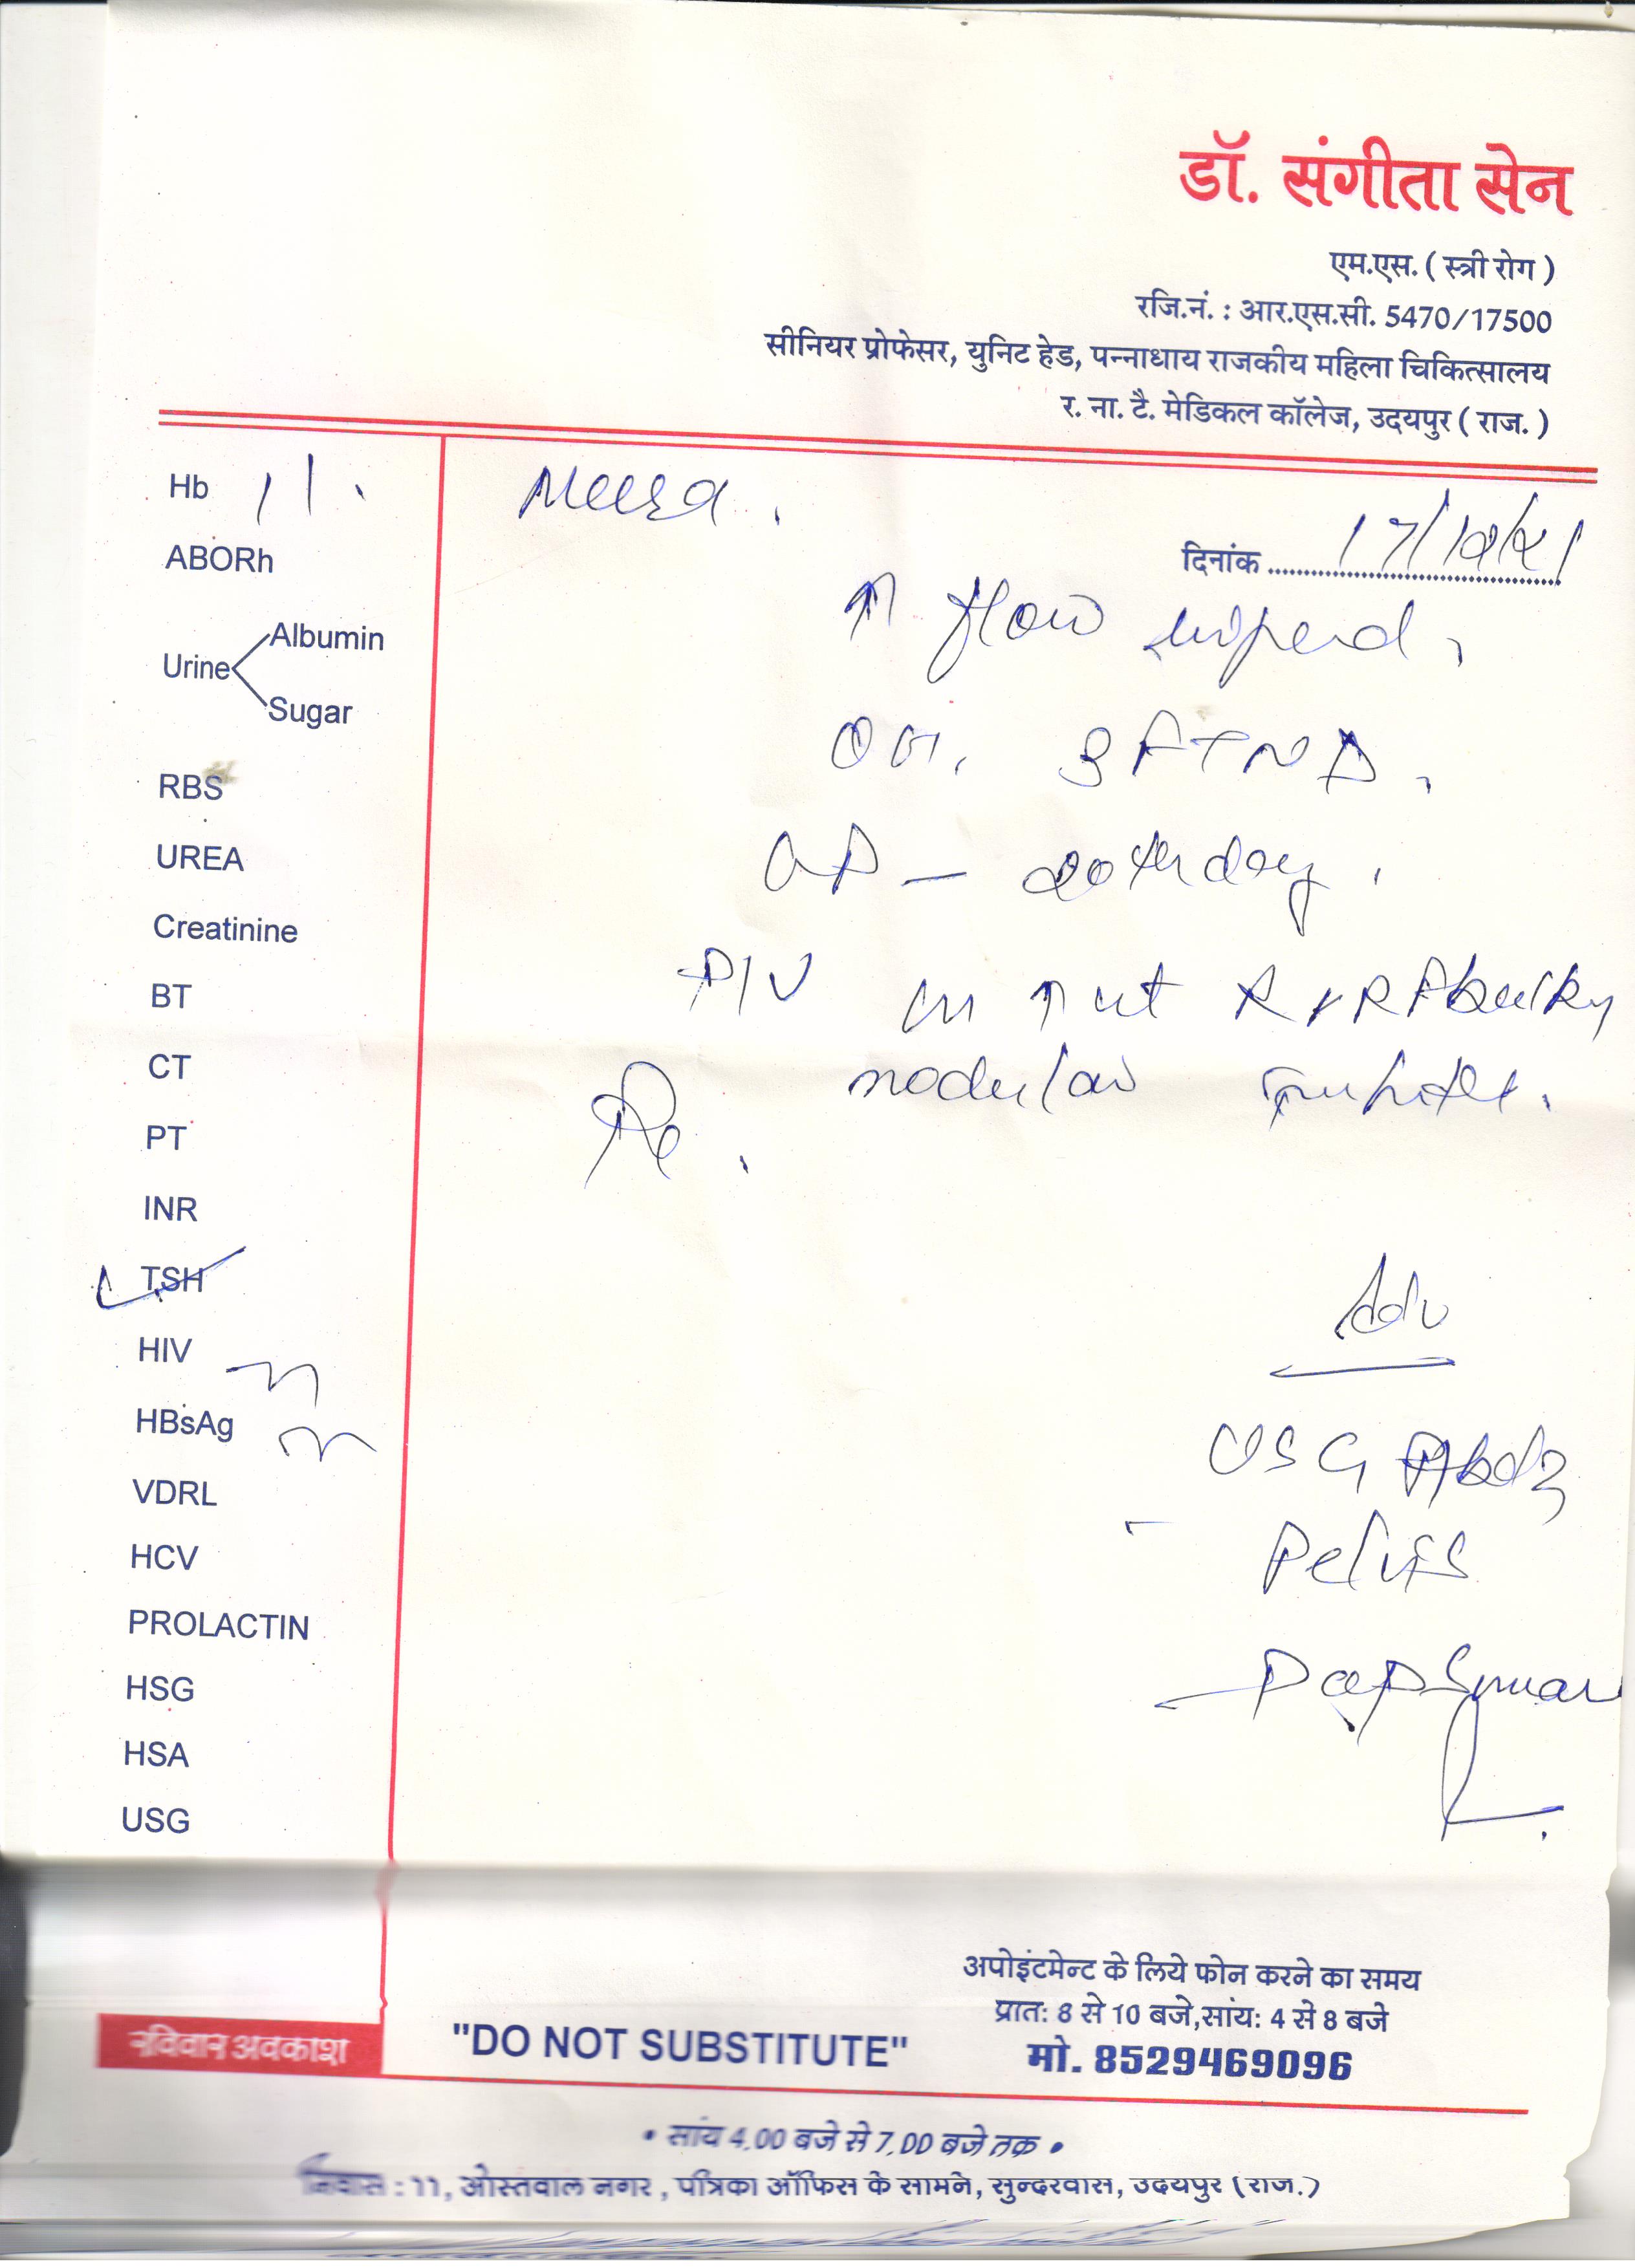 डॉ. संगीता सेन
एम.एस. ( स्त्री रोग )
रजि.नं. : आर.एस.सी. 5470/17500
सीनियर प्रोफेसर, युनिट हेड, पन्नाधाय राजकीय महिला चिकित्सालय
र. ना. टै. मेडिकल कॉलेज, उदयपुर ( राज. )
Hb 11.
Meera.
दिनांक 17/12/21
ABORh
↑ flow
Urine
Albumin
Sugar
RBS
OH. 3 FTND.
UREA
20th day.
Creatinine
P/V
BT
ut RVRF bulky
CT
nodular
PT
INR
TSH
Adv
HIV
HBsAg
USG Abd &
VDRL
Pelvis
HCV
PROLACTIN
Pap Smear
HSG
HSA
USG
अपोइंटमेन्ट के लिये फोन करने का समय
प्रात: 8 से 10 बजे,सांय: 4 से 8 बजे
रविवार अवकाश
"DO NOT SUBSTITUTE"
मो. 8529469096
• सांय 4.00 बजे से 7.00 बजे तक •
निवास : 11, ओस्तवाल नगर, पत्रिका ऑफिस के सामने, सुन्दरवास, उदयपुर (राज.)